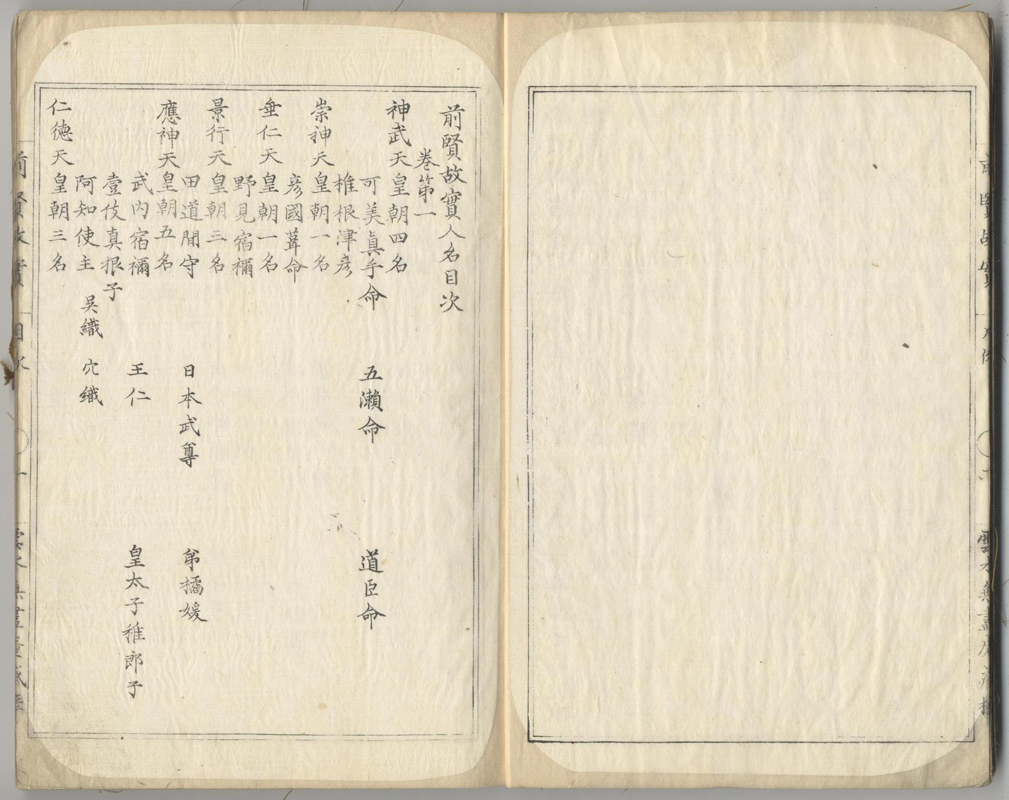 前賢故實人名目次
卷第一
神武天皇朝四名
可美眞手命 五瀬命 道臣命
椎根津彦
崇神天皇朝一名
彦國葺命
垂仁天皇朝一名
野見宿禰
景行天皇朝三名
田道間守 日本武尊 弟橘媛
應神天皇朝五名
武内宿禰 王仁 皇太子稚郎子
壹伎真根子
阿知使主 吳織 穴織
仁徳天皇朝三名